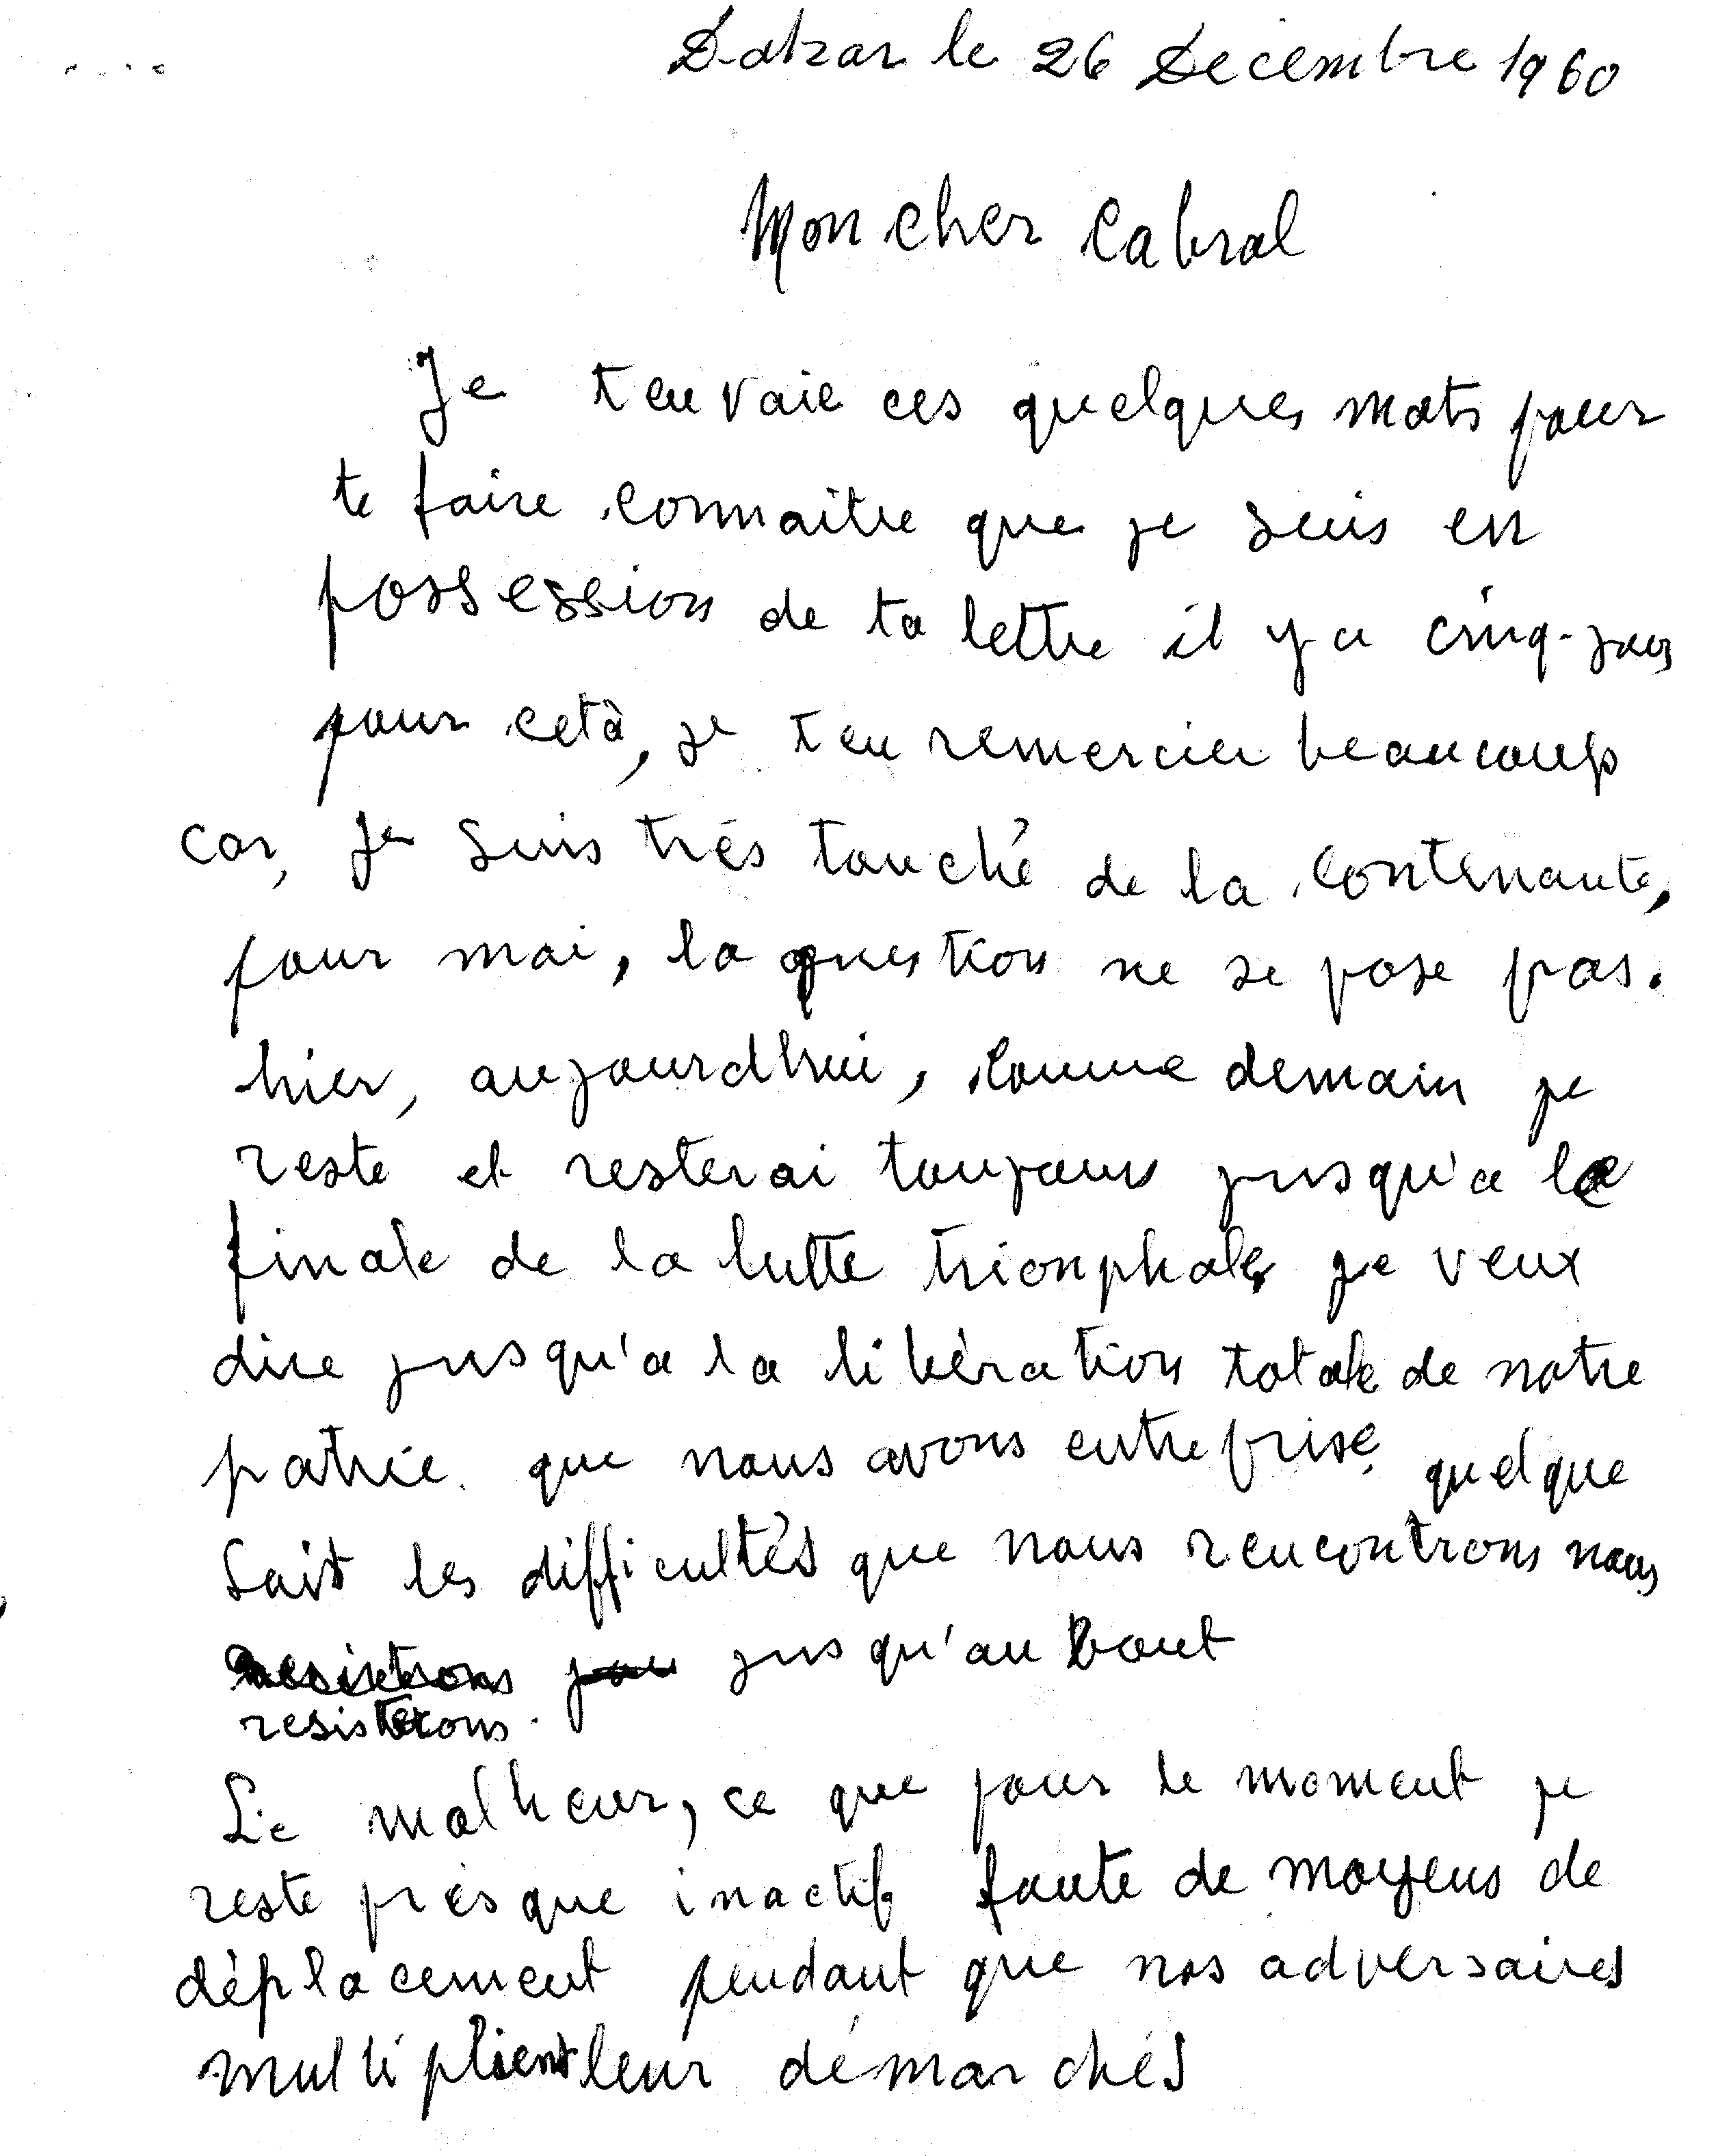 Dakar le 26 Decembre 1960
Mon cher Cabral
Je t'envoie ces quelques mots pour
te faire connaitre que je suis en
possession de ta lettre il y a cinq-jours
pour celà, je t'en remercier beaucoup
car, Je suis très touché de la contenante,
pour moi, la question ne se pose pas.
hier, aujourdhui, comme demain je
reste et resterai toujours jusqu'a la
finale de la lutte trionphale, je veux
dire jusqu'a la libèration totale de notre
patrie que nous avons entreprise, quelque
Soit les difficultés que nous rencontrons nous
jusqu'au bout
resisterons.
Le malheur, ce que pour le moment je
reste prèsque inactif faute de moyens de
dèplacement pendant que nos adversaires
multiplient leur démarchés